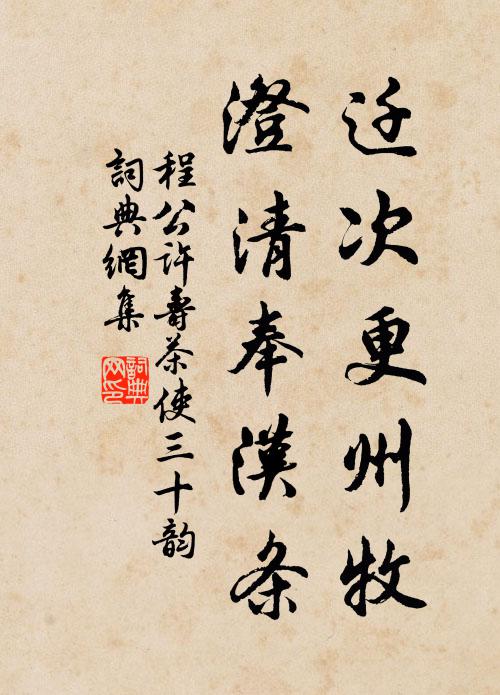 迁次更州牧
澄清奉漢条
程公许寿茶使三十韵
詞典網集
詞典网印